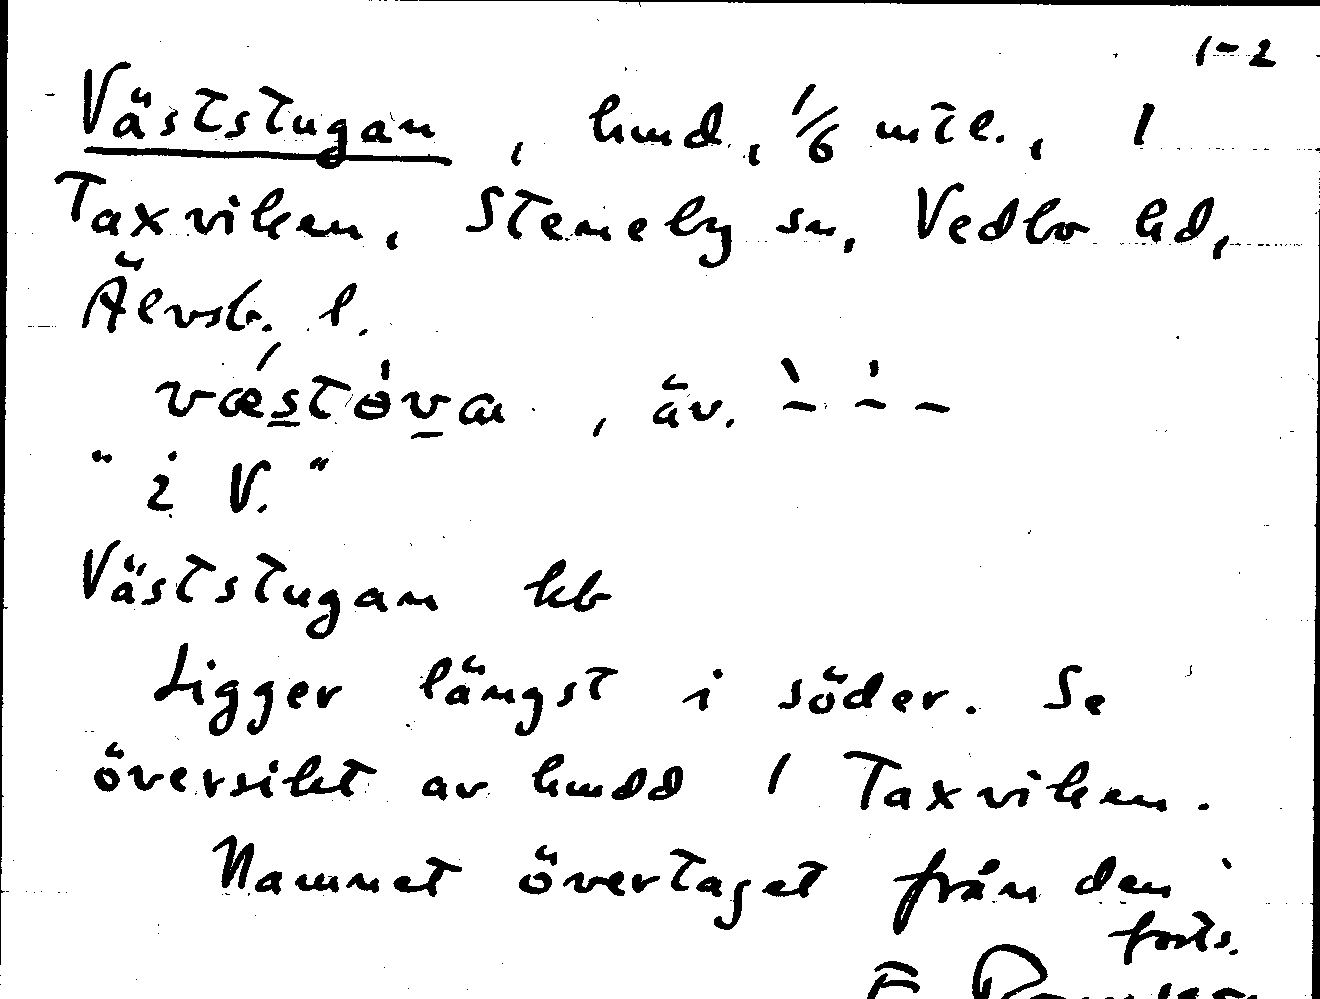 1-2
Väststugan, hmd, 1/6 mtl., 1
Taxviken, Steneby sn, Vedbo hd,
Älvsb. l.
væstȯva, äv. ` ' -
"i V."
Väststugan kb
Ligger längst i söder. Se
översikt av hmdd 1 Taxviken.
Namnet övertaget från den
forts.